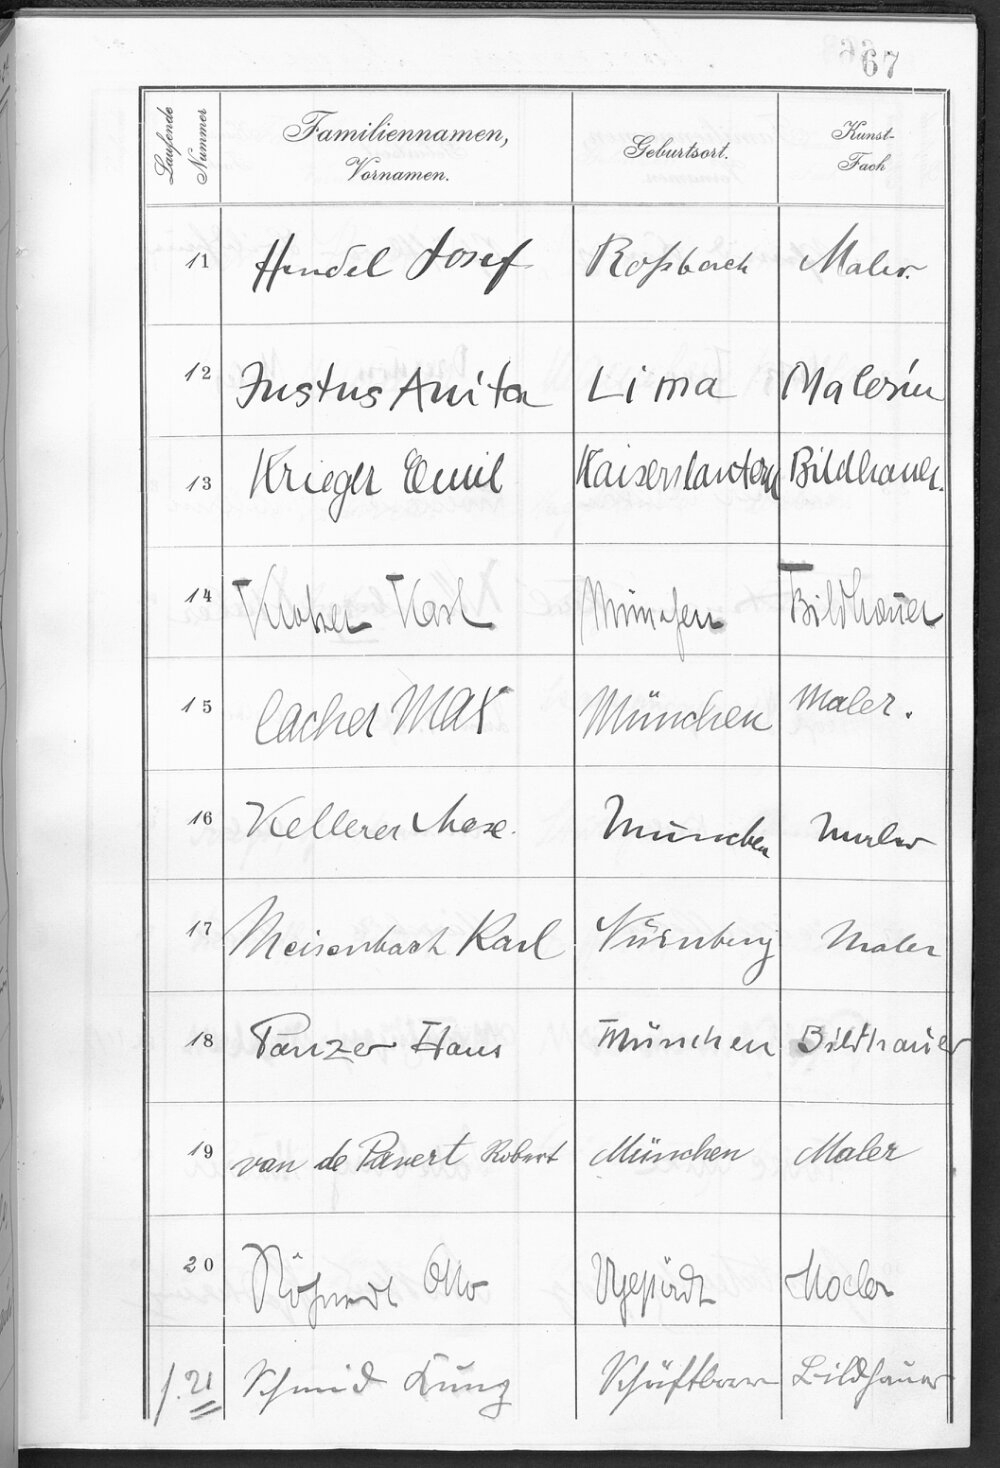 67
Laufende Nummer
Familiennamen,
Vornamen.
Geburtsort.
Kunst-
Fach
11 Hendel Josef Roßbach Maler.
12 Justus Anita Lima Malerin
13 Krieger Emil Kaiserslautern Bildhauer.
14 Karl München Bildhauer
15 Lacher Max München Maler.
16 Kellerer Max. München Maler
17 Meisenbach Karl Nürnberg Maler
18 Panzer Hans München Bildhauer
19 van de Pavert Robert München Maler
20 Otto Maler
21 Schmid Bildhauer